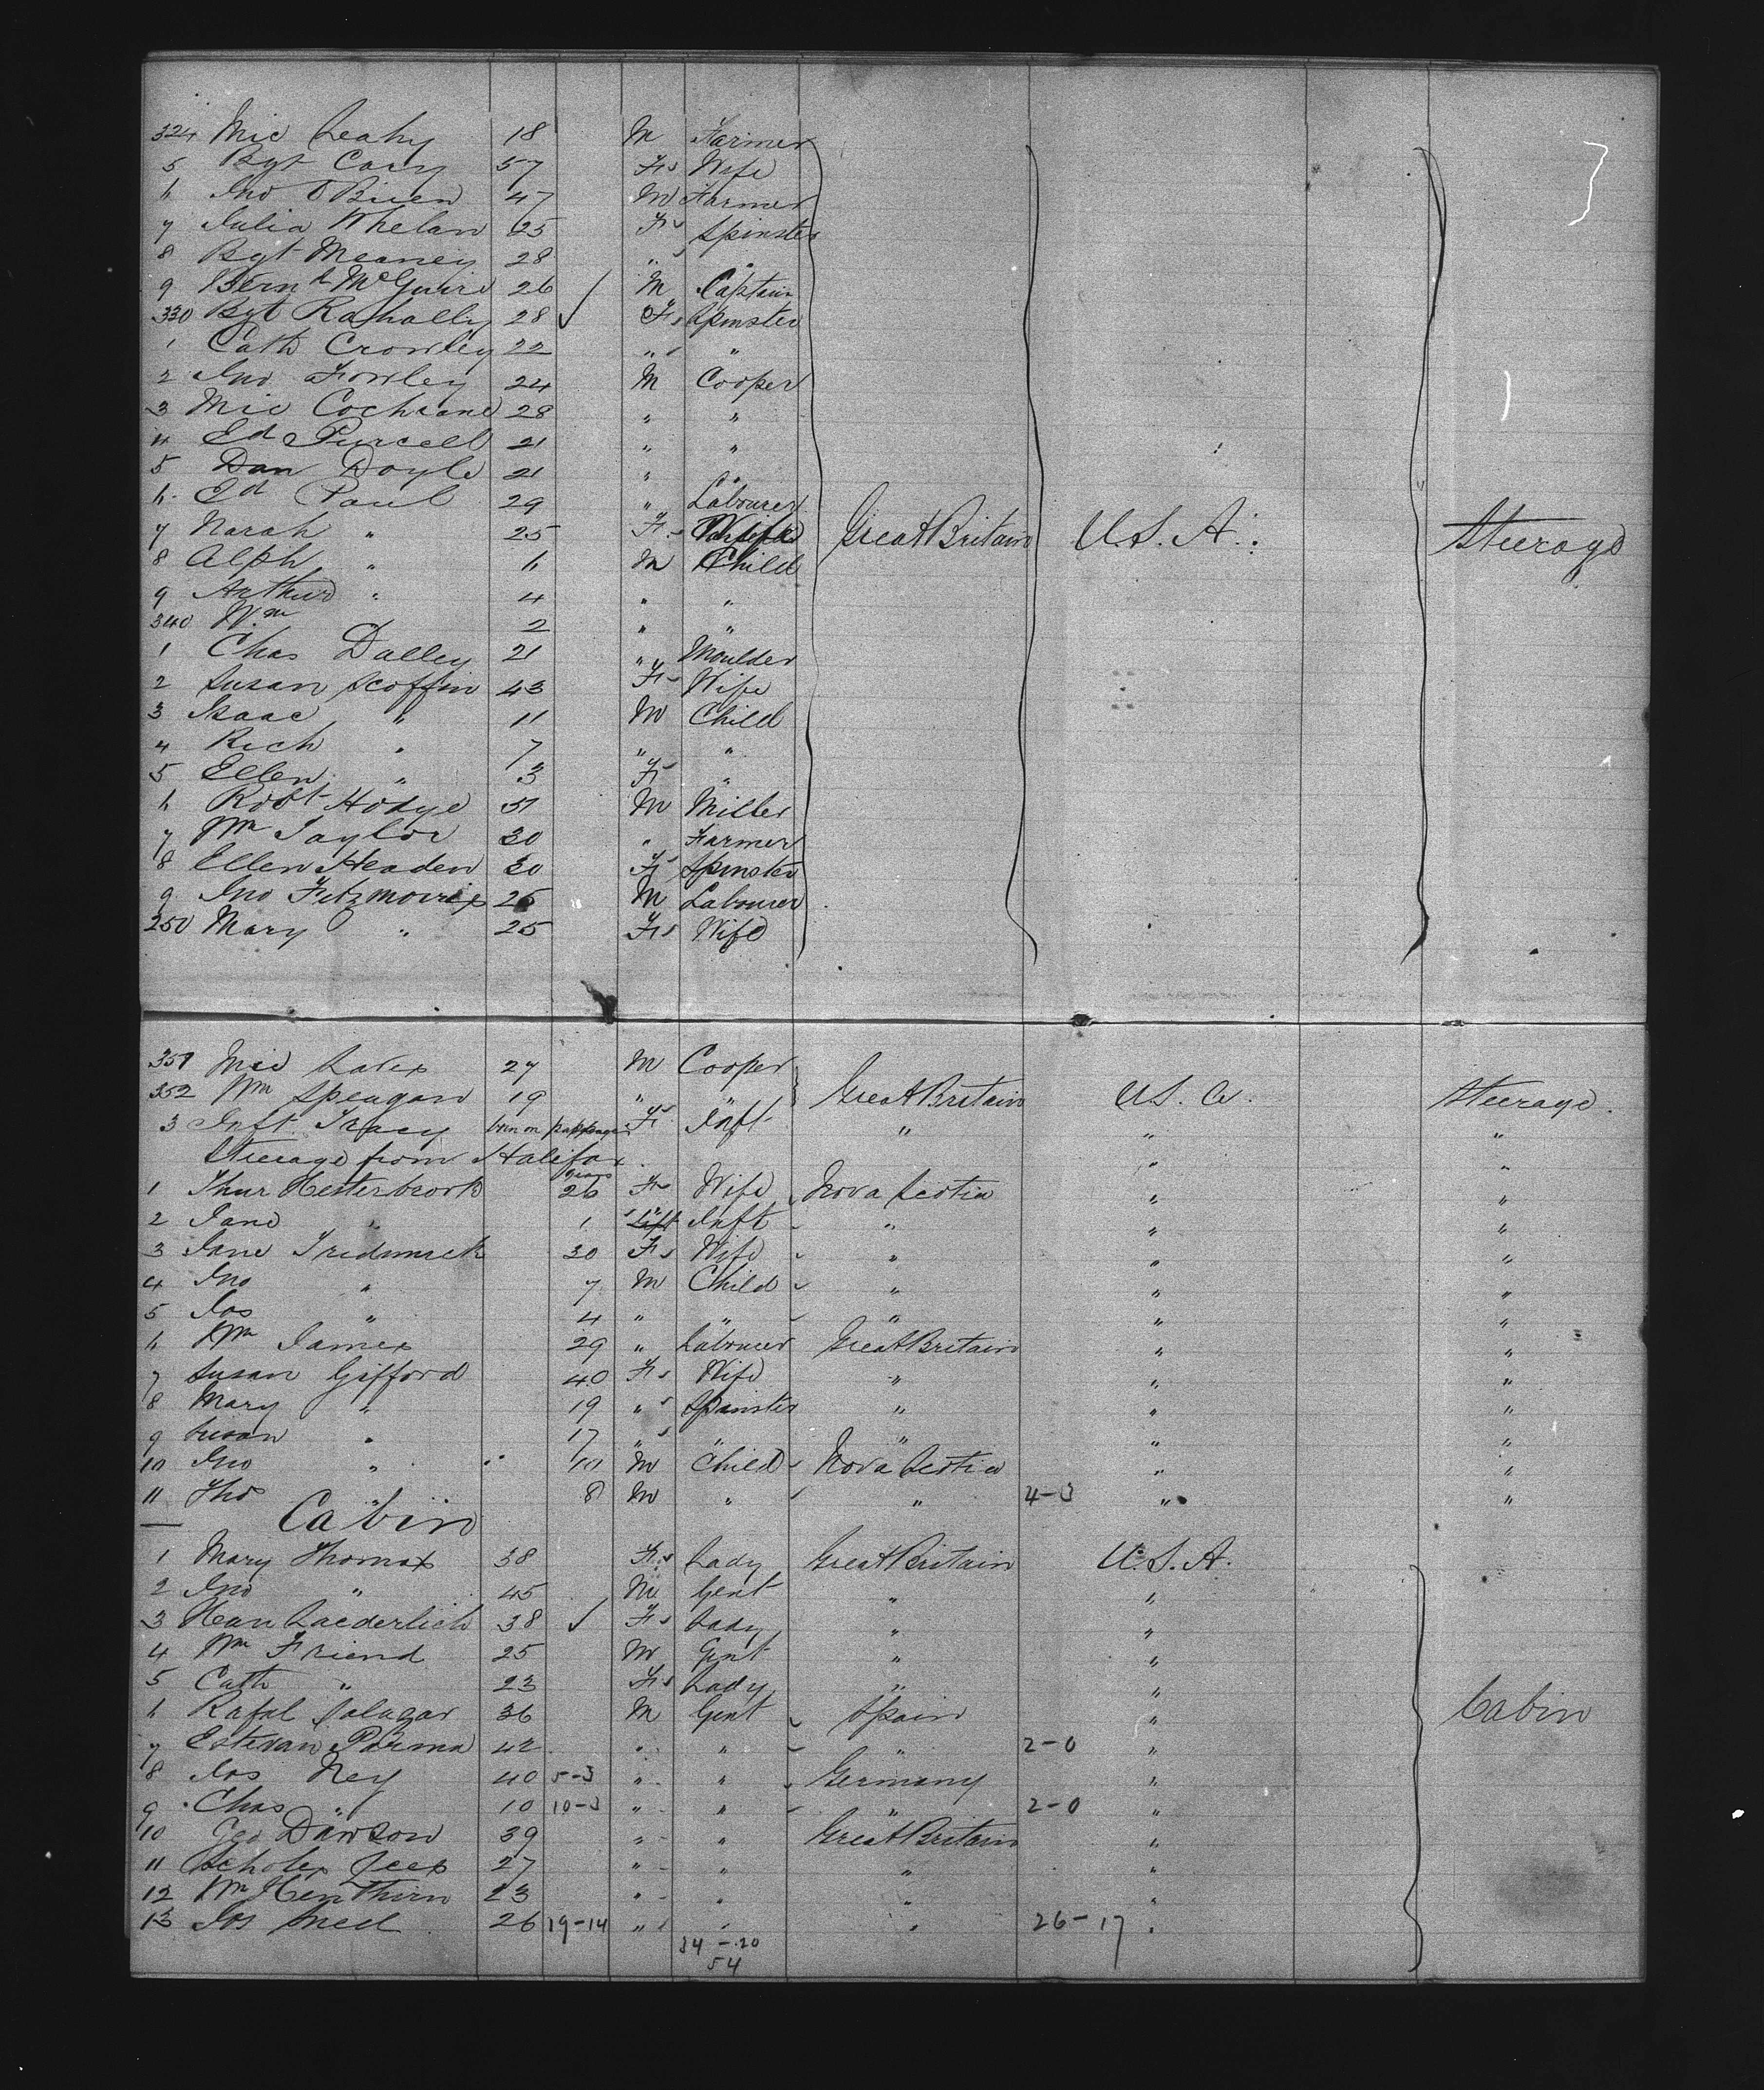 324 Mic Leahy 18 M Farmer
5 Bgt Cary 57 F Wife
6 Jno O'Brien 47 M Farmer
7 Julia Whelan 25 F Spinster
8 Bgt Meaney 28 " "
9 Bernd McGuire 26 M Captain
330 Bgt Rahally 28 F Spinster
1 Cath Crowley 22 " "
2 Jno Fowley 24 M Cooper
3 Mic Cochrane 28 " "
4 Ed Purcell 21 " "
5 Dan Doyle 21 " "
6 Ed Paul 29 " Labourer
7 Norah " 25 F Wife Great Britain U.S.A. Steerage
8 Alph " 6 M Child
9 Arthur " 4 " "
340 Wm 2 " "
1 Chas Dalley 21 " Moulder
2 Susan Scoffin 43 F Wife
3 Isaac " 11 M Child
4 Rich " 7 " "
5 Ellen " 3 F "
6 Robt Hodge 31 M Miller
7 Wm Taylor 30 " Farmer
8 Ellen Headen 30 F Spinster
9 Jno Fitzmorris 25 M Labourer
250 Mary " 25 F Wife
351 Mic 27 M Cooper
352 Wm Speagan 19 " " Great Britain U.S.A. Steerage.
3 Inft Tracy born on passage F Inft " " "
Steerage from Halifax " "
1 Hesterbrook 26 years F Wife Nova Scotia " "
2 Jane " 1 " Inft " " "
3 Jane 30 F Wife " " "
4 Jno " 7 M Child " " "
5 Jos " 4 " " " " "
6 Wm James 29 " Labourer Great Britain " "
7 Susan Gifford 40 F Wife " " "
8 Mary " 19 " Spinster " " "
9 Susan " 17 " " " " "
10 Jno " 10 M Child Nova Scotia " "
11 Thos " 8 M " " 4-3 " "
Cabin
1 Mary Thomas 38 F Lady Great Britain U.S.A.
2 Jno " 45 M Gent " "
3 Laederlich 38 F Lady " "
4 Wm Friend 25 M Gent " "
5 Cath " 23 F Lady " "
6 Rafal Salagar 36 M Gent Spain " Cabin
7 Estevan Parma 42 " " " 2-0 "
8 Jos Ney 40 5-3 " " Germany "
9 Chas " 10 10-3 " " " 2-0 "
10 Geo Dawson 39 " " Great Britain "
11 Scholes 27 " " " "
12 Wm Henthirn 23 " " " "
13 Jos 26 19-14 " " " 26-17 "
34-20
54